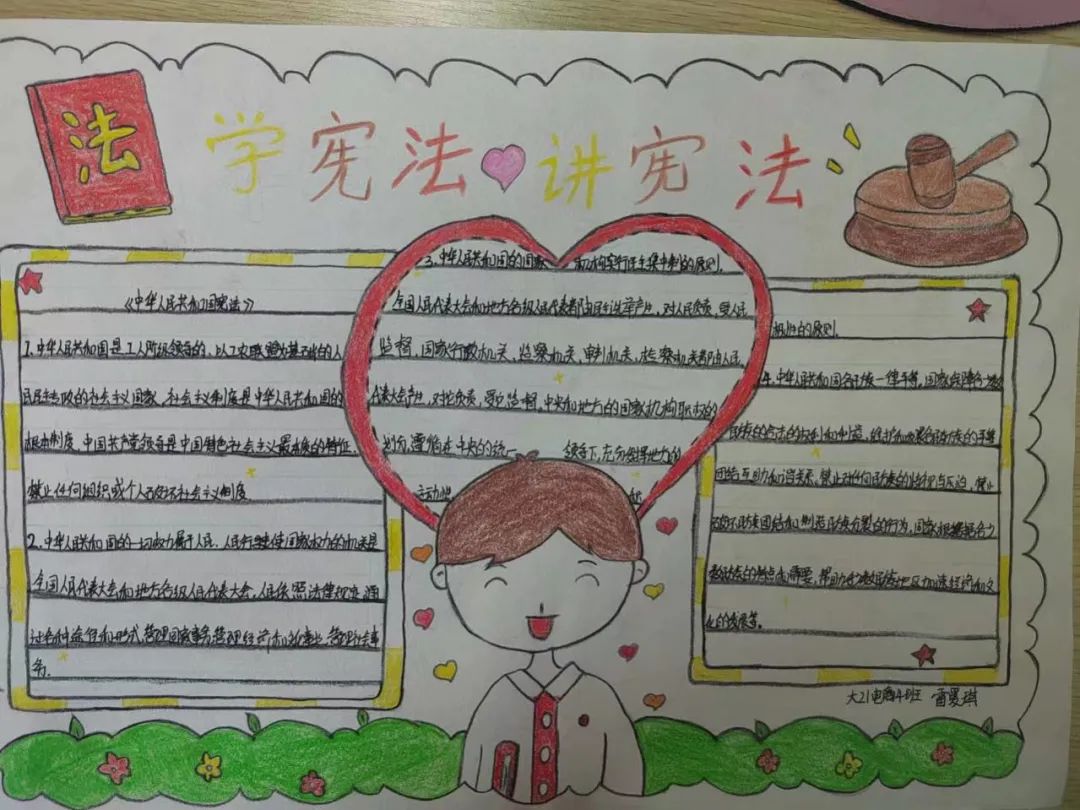 法
学宪法 讲宪法
《中华人民共和国宪法》
1.中华人民共和国是工人阶级领导的，以工农联盟为基础的人
民民主专政的社会主义国家。社会主义制度是中华人民共和国的
根本制度。中国共产党领导是中国特色社会主义最本质的特征。
禁止任何组织或个人破坏社会主义制度
2.中华人民共和国的一切权力属于人民。人民行使国家权力的机关是
全国人民代表大会和地方各级人民代表大会。人民依照法律规定，通
过各种途径和形式，管理国家事务，管理经济和文化事业，管理社会事
务。
3.中华人民共和国的国家 机构实行民主集中制的原则。
全国人民代表大会和地方各级人民代表都由民主选举产生，对人民负责，受人民
监督，国家行政机关、监察机关、审判机关、检察机关都由人民
代表大会产生，对它负责，受它监督，中央和地方的国家机构职权的
划分，遵循在中央的统一 领导下，充分发挥地方的
主动性
极性的原则。
4.中华人民共和国各民族一律平等。国家保障各
民族的合法的权利和利益，维护和发展各民族的平等
团结互助和谐关系。禁止对任何民族的歧视与压迫，禁止
破坏民族团结和制造民族分裂的行为，国家根据各少
数民族的特点和需要，帮助少数民族地区加速经济和文
化的发展等。
大21电商4班 雷